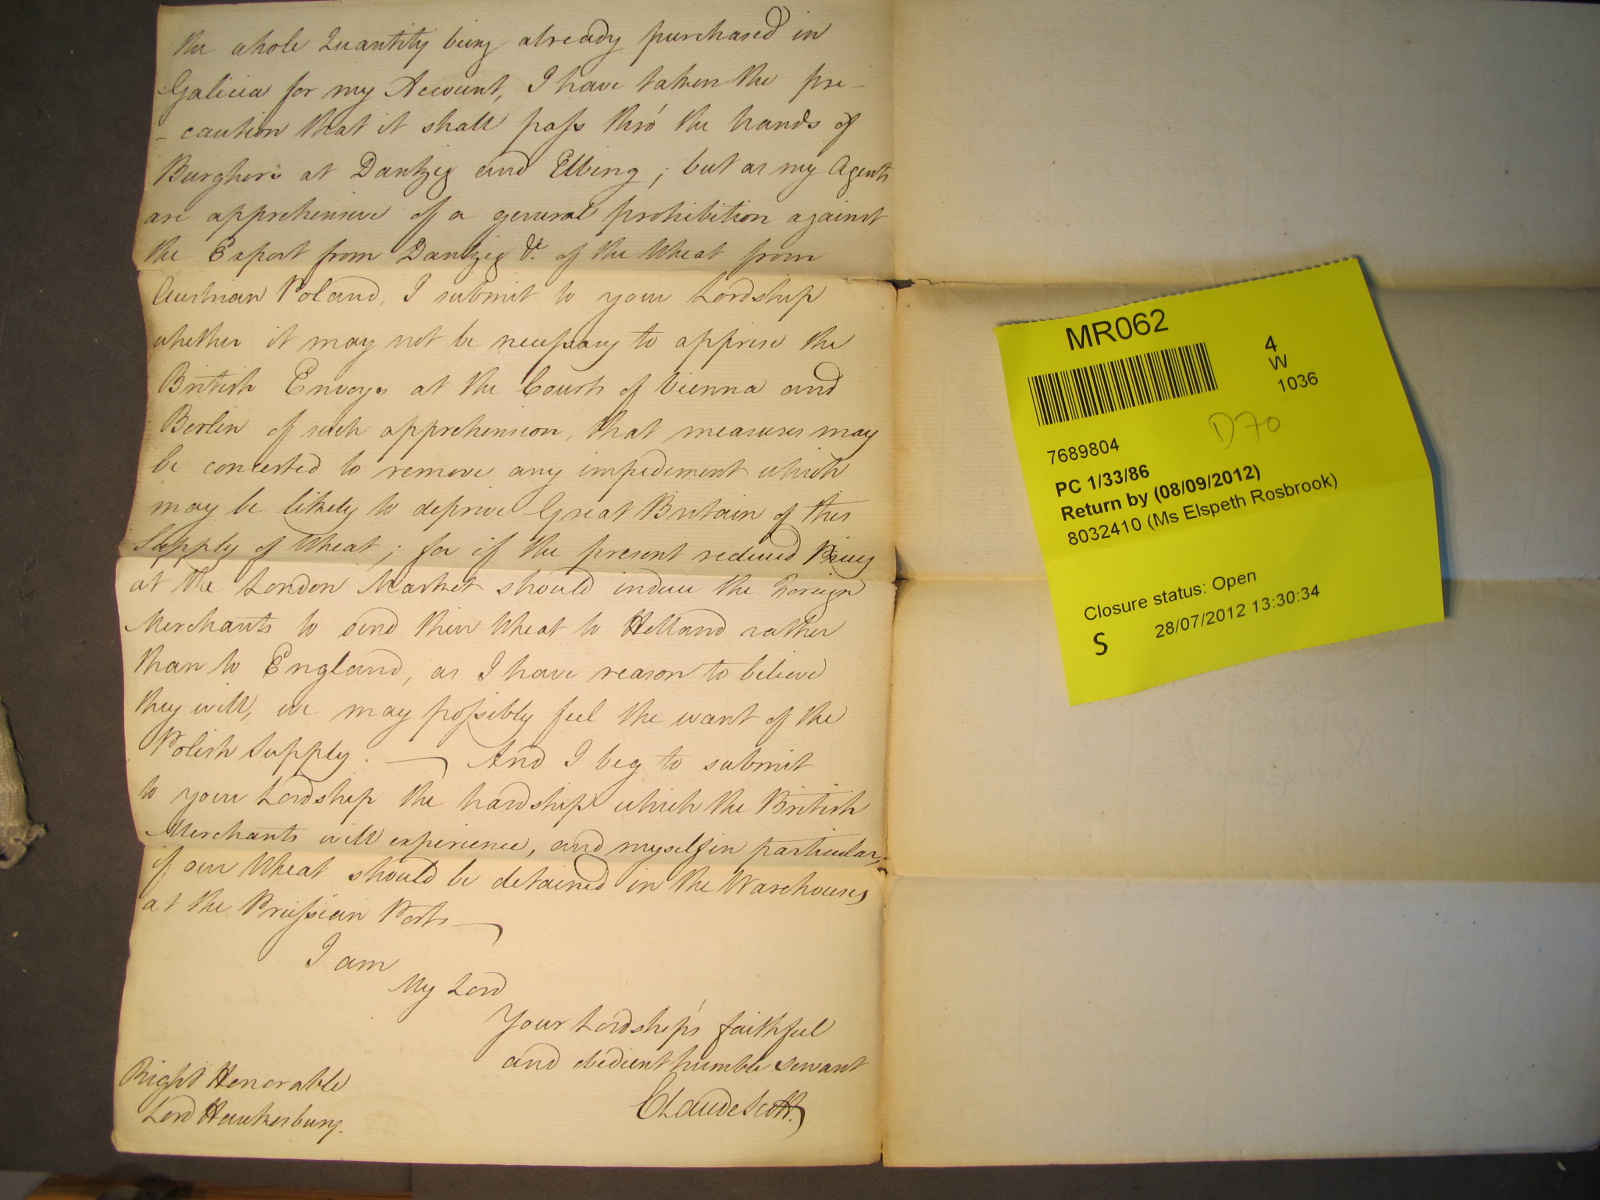 the whole Quantity being already purchased in
Galicia for my Account, I have taken the pre-
-caution that it shall pass thro' the hands of
Burghers at Dantzig and Elbing; but as my Agents
are apprehensive of a general prohibition against
the Export from Dantzig &c. of the Wheat from
Austrian Poland, I submit to your Lordship
whether it may not be necessary to apprise the
British Envoys at the Courts of Vienna and
Berlin of such apprehension, that measures may
be concerted to remove any impediment which
may be likely to deprive Great Britain of this
Supply of Wheat; for if the present reduced Prices
at the London Market should induce the Foreign
Merchants to send their Wheat to Holland rather
than to England, as I have reason to believe
they will, we may possibly feel the want of the
Polish Supply. — And I beg to submit
to your Lordship the hardship which the British
Merchants will experience, and myself in particular,
if our Wheat should be detained in the Warehouses
at the Prussian Ports —
I am
My Lord
Your Lordship's faithful
and obedient humble servant
Claude Scott.
Right Honorable
Lord Hawkesbury.
MR062
4
W
1036
D70
7689804
PC 1/33/86
Return by (08/09/2012)
8032410 (Ms Elspeth Rosbrook)
Closure status: Open
S
28/07/2012 13:30:34